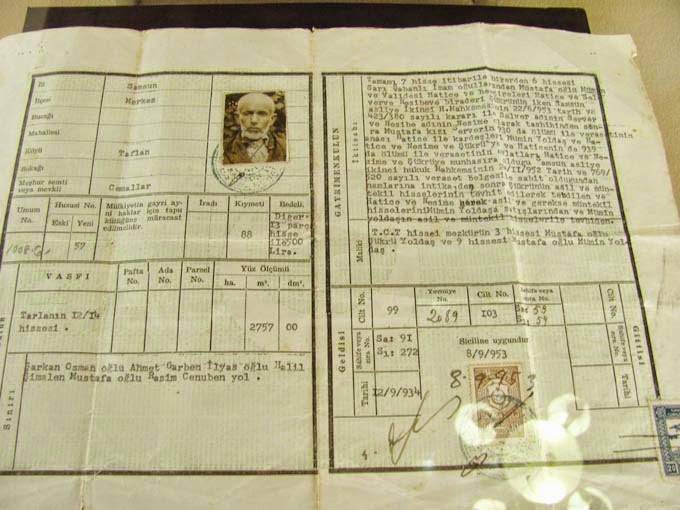 İli Samsun
İlçesi Merkez
Bucağı
Mahallesi
Köyü Taflan
Sokağı
Meşhur semti
veya mevkii Cemallar
Umum No.
Hususi No.
Eski Yeni
57
Mülkiyetin gayri ayni haklar için tapu kütüğüne müracaat edilmelidir.
İradı
Kıymeti
88
Bedeli.
Diğer
13 parça
hisse
118500
Lira.
VASFI
Pafta No.
Ada No.
Parsel No.
Yüz Ölçümü
ha. m². dm².
Tarlanın 12/14
hissesi .
2757 00
Sınırı
Şarkan Osman oğlu Ahmet Garben İlyas oğlu Halil
Şimalen Mustafa oğlu Rasim Cenuben yol .
GAYRİMENKULÜN
İktisabı
Tamamı 7 hisse itibarile birerden 6 hissesi
Sarı Vahanlı İmam oğullarından Mustafa oğlu Mümin
ve Validesi Hatice ve hemşireleri Hatice ve Sel
ver ve Nesibe biraderi Şükrünün iken Samsun
asliye ikinci H.Mahkemesinin 22/6/951 tarih ve
423/380 sayılı kararı ile Selver adının Server
ve Nesibe adının Nesime olarak tashihinden son
ra Mustafa kızı Serverin 930 da ölümü ile verasetinin
anası Hatice ile kardeşleri Mümin Yoldaş ve Ha
tice ve Nesime ve Şükrü'ye ve Haticenin de 939
da ölümü ile verasetinin evlatları Hatice ve Ne
sime ve Şükrüye munhasıra olduğu Samsun asliye
ikinci hukuk Mahkemesinin 5/VII/952 Tarih ve 769/
520 sayılı veraset belgesile sabit olduğundan
namlarına intikalden sonra Şükrünün asil ve mün
tekil hisselerini tevhit edilerek tecdilen ve
Hatice ve Nesime gerek asil ve gerekse müntekil
hisselerini Mümin Yoldaşa satışlarından ve Mümin
yoldaşın asil ve müntekil hisselerile tevhiden.
Maliki
T.C.T hissei mezkürün 3 hissesi Mustafa oğlu
Şükrü Yoldaş ve 9 hissesi Mustafa oğlu Mümin Yol
daş .
Geldisi
Cilt No. 99
Sahife veya sıra No. Sa: 91
Sı: 272
Tarihi 12/9/934
Yevmiye No.
2089
Cilt No.
103
Sahife veya sıra No.
Sa: 59
Siciline uygundur
8/9/953
8 - 9 - 953
Gittisi
Cilt No.
Sahife veya sıra No.
Tarihi
20